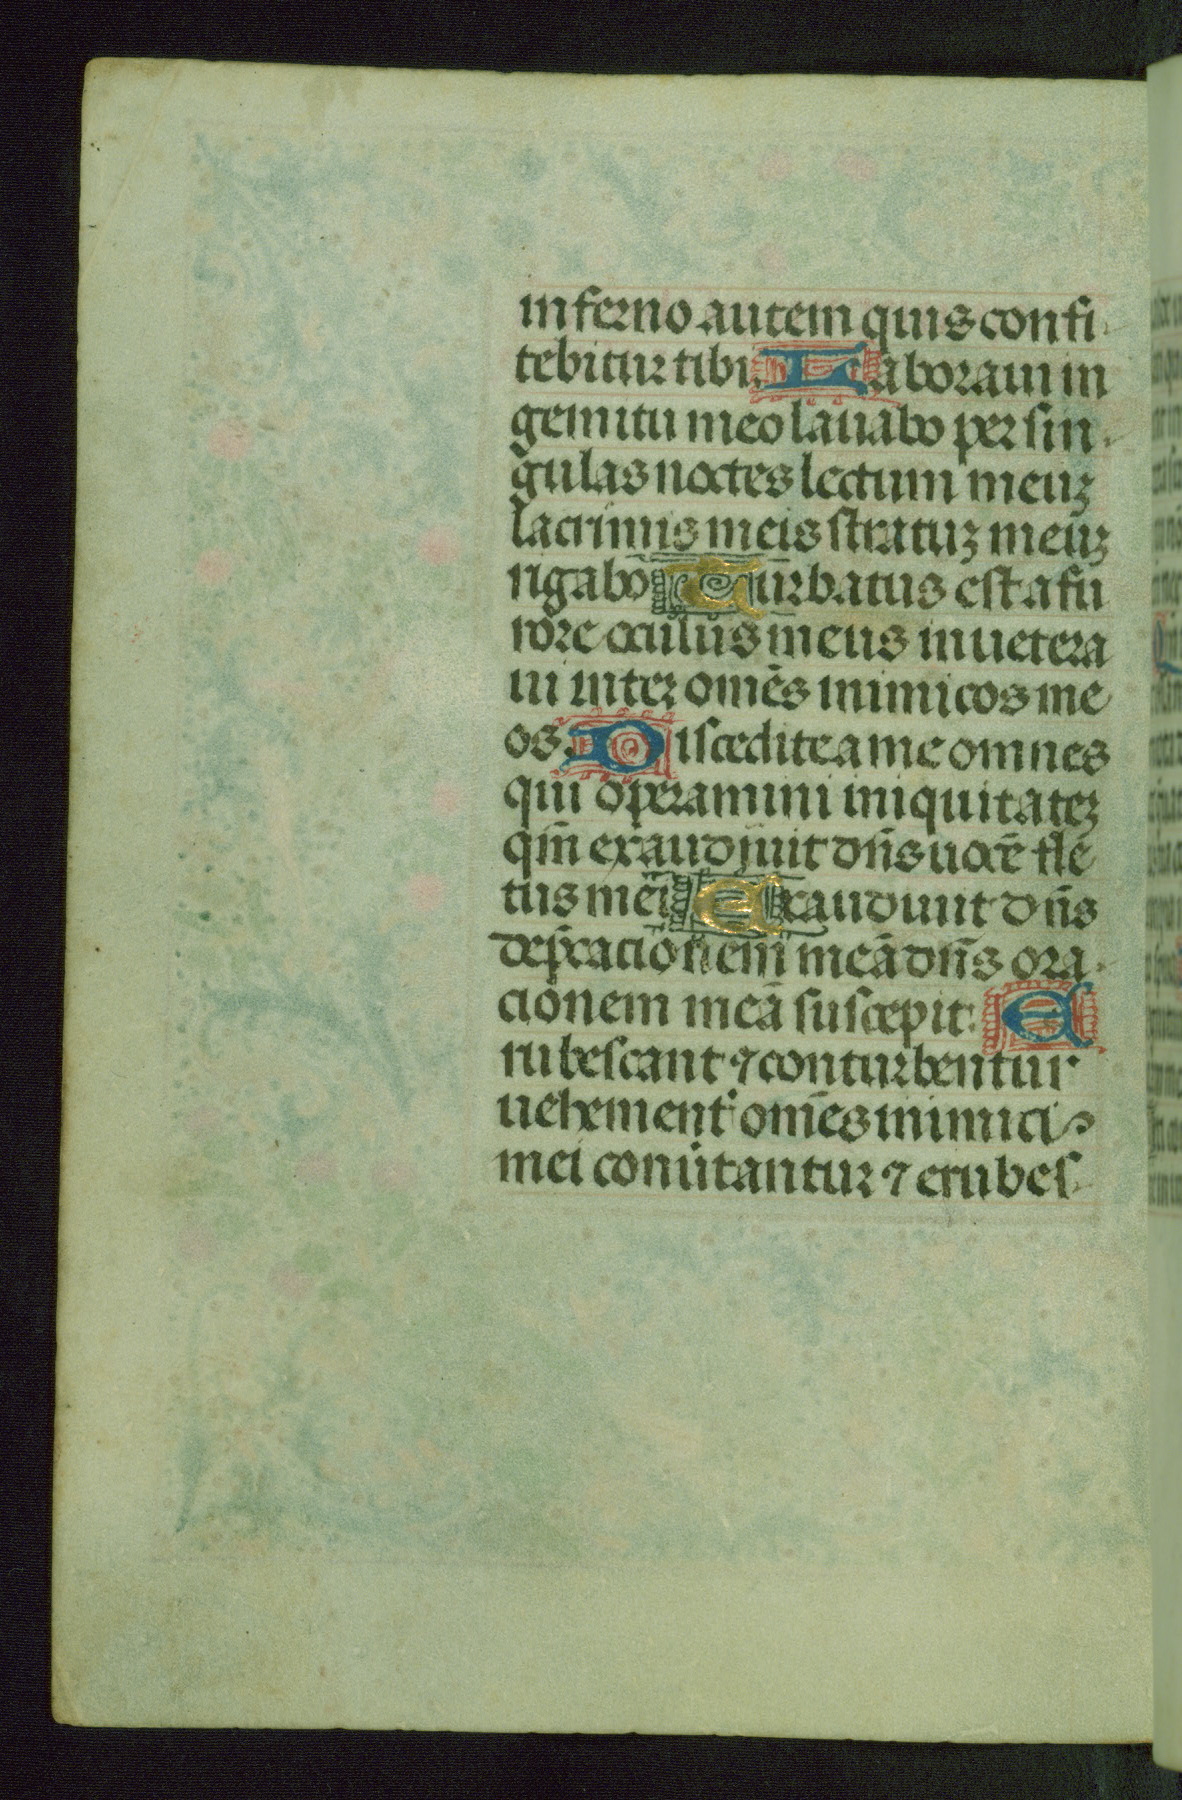 inferno autem quis confi
tebitur tibi. Laboraui in
gemitu meo lauabo per sin
gulas noctes lectum meuz
lacrimis meis stratuz meuz
rigabo Turbatus est a fu
rore oculus meus inuetera
ui inter omēs inimicos me
os. Discedite a me omnes
qui operamini iniquitatez
qm̄ exaudiuit dn̄s uocē fle
tus mei Exaudiuit dn̄s
dep̄cationem meā dn̄s ora
cionem meā suscepit: E
rubescant ⁊ conturbentur
uehement' om̄es inimici
mei conūtantur ⁊ erubes